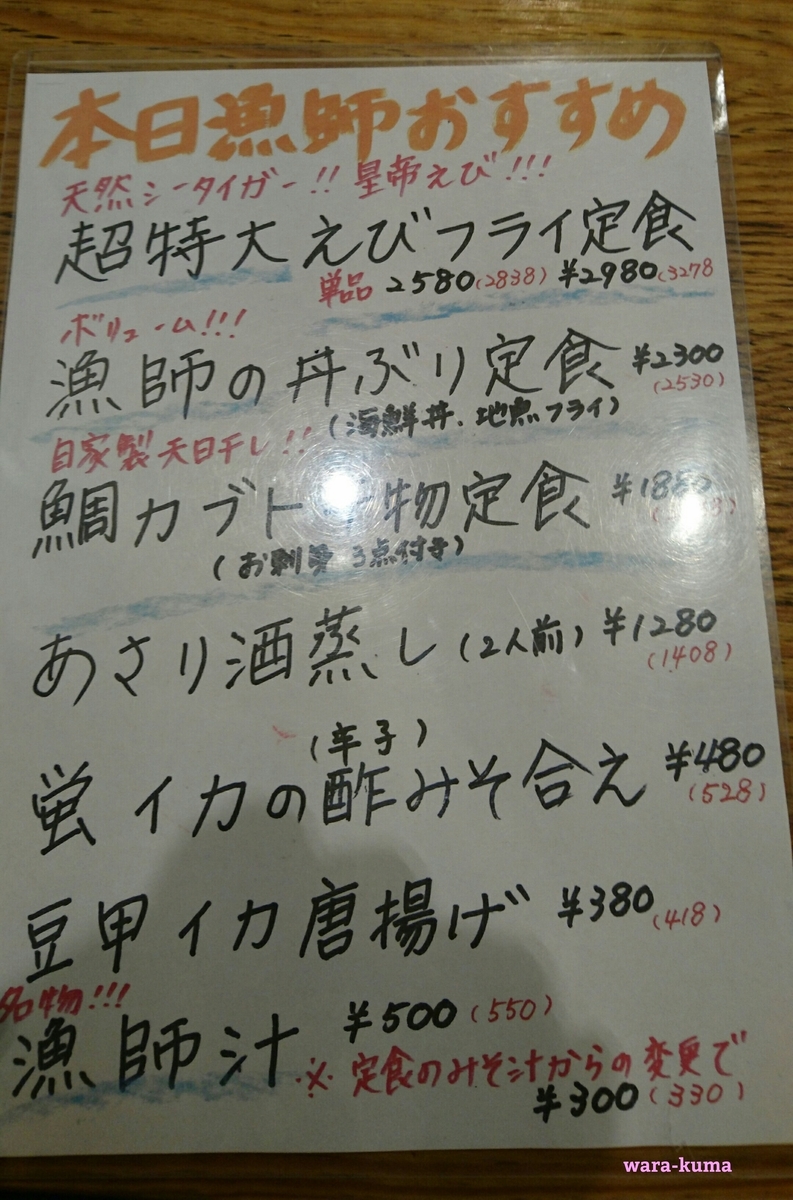 本日漁師おすすめ
天然シータイガー!! 皇帝えび!!!
超特大えびフライ定食
単品 2580(2838) ¥2980(3278
ボリューム!!!
漁師の丼ぶり定食 ¥2300
(2530)
(海鮮丼、地魚フライ)
自家製天日干し!!
鯛カブト干物定食
(お刺身3点付き)
あさり酒蒸し(2人前) ¥1280
(1408)
(辛子)
蛍イカの酢みそ合え ¥480
(528)
豆甲イカ唐揚げ ¥380
(418)
名物!!!
漁師汁 ¥500(550)
※定食のみそ汁からの変更で
¥300(330)
wara-kuma